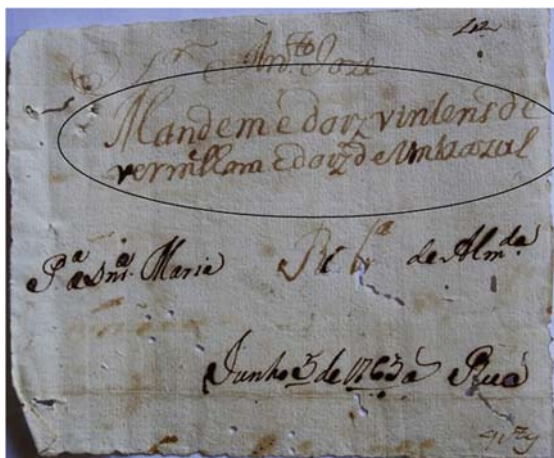 Joze
Mandemè dorz vintens de
vermillam e dorz de tinta azul
Pª a Snrª. Maria de Almdª.
Junho 3 de 1763 a Rua